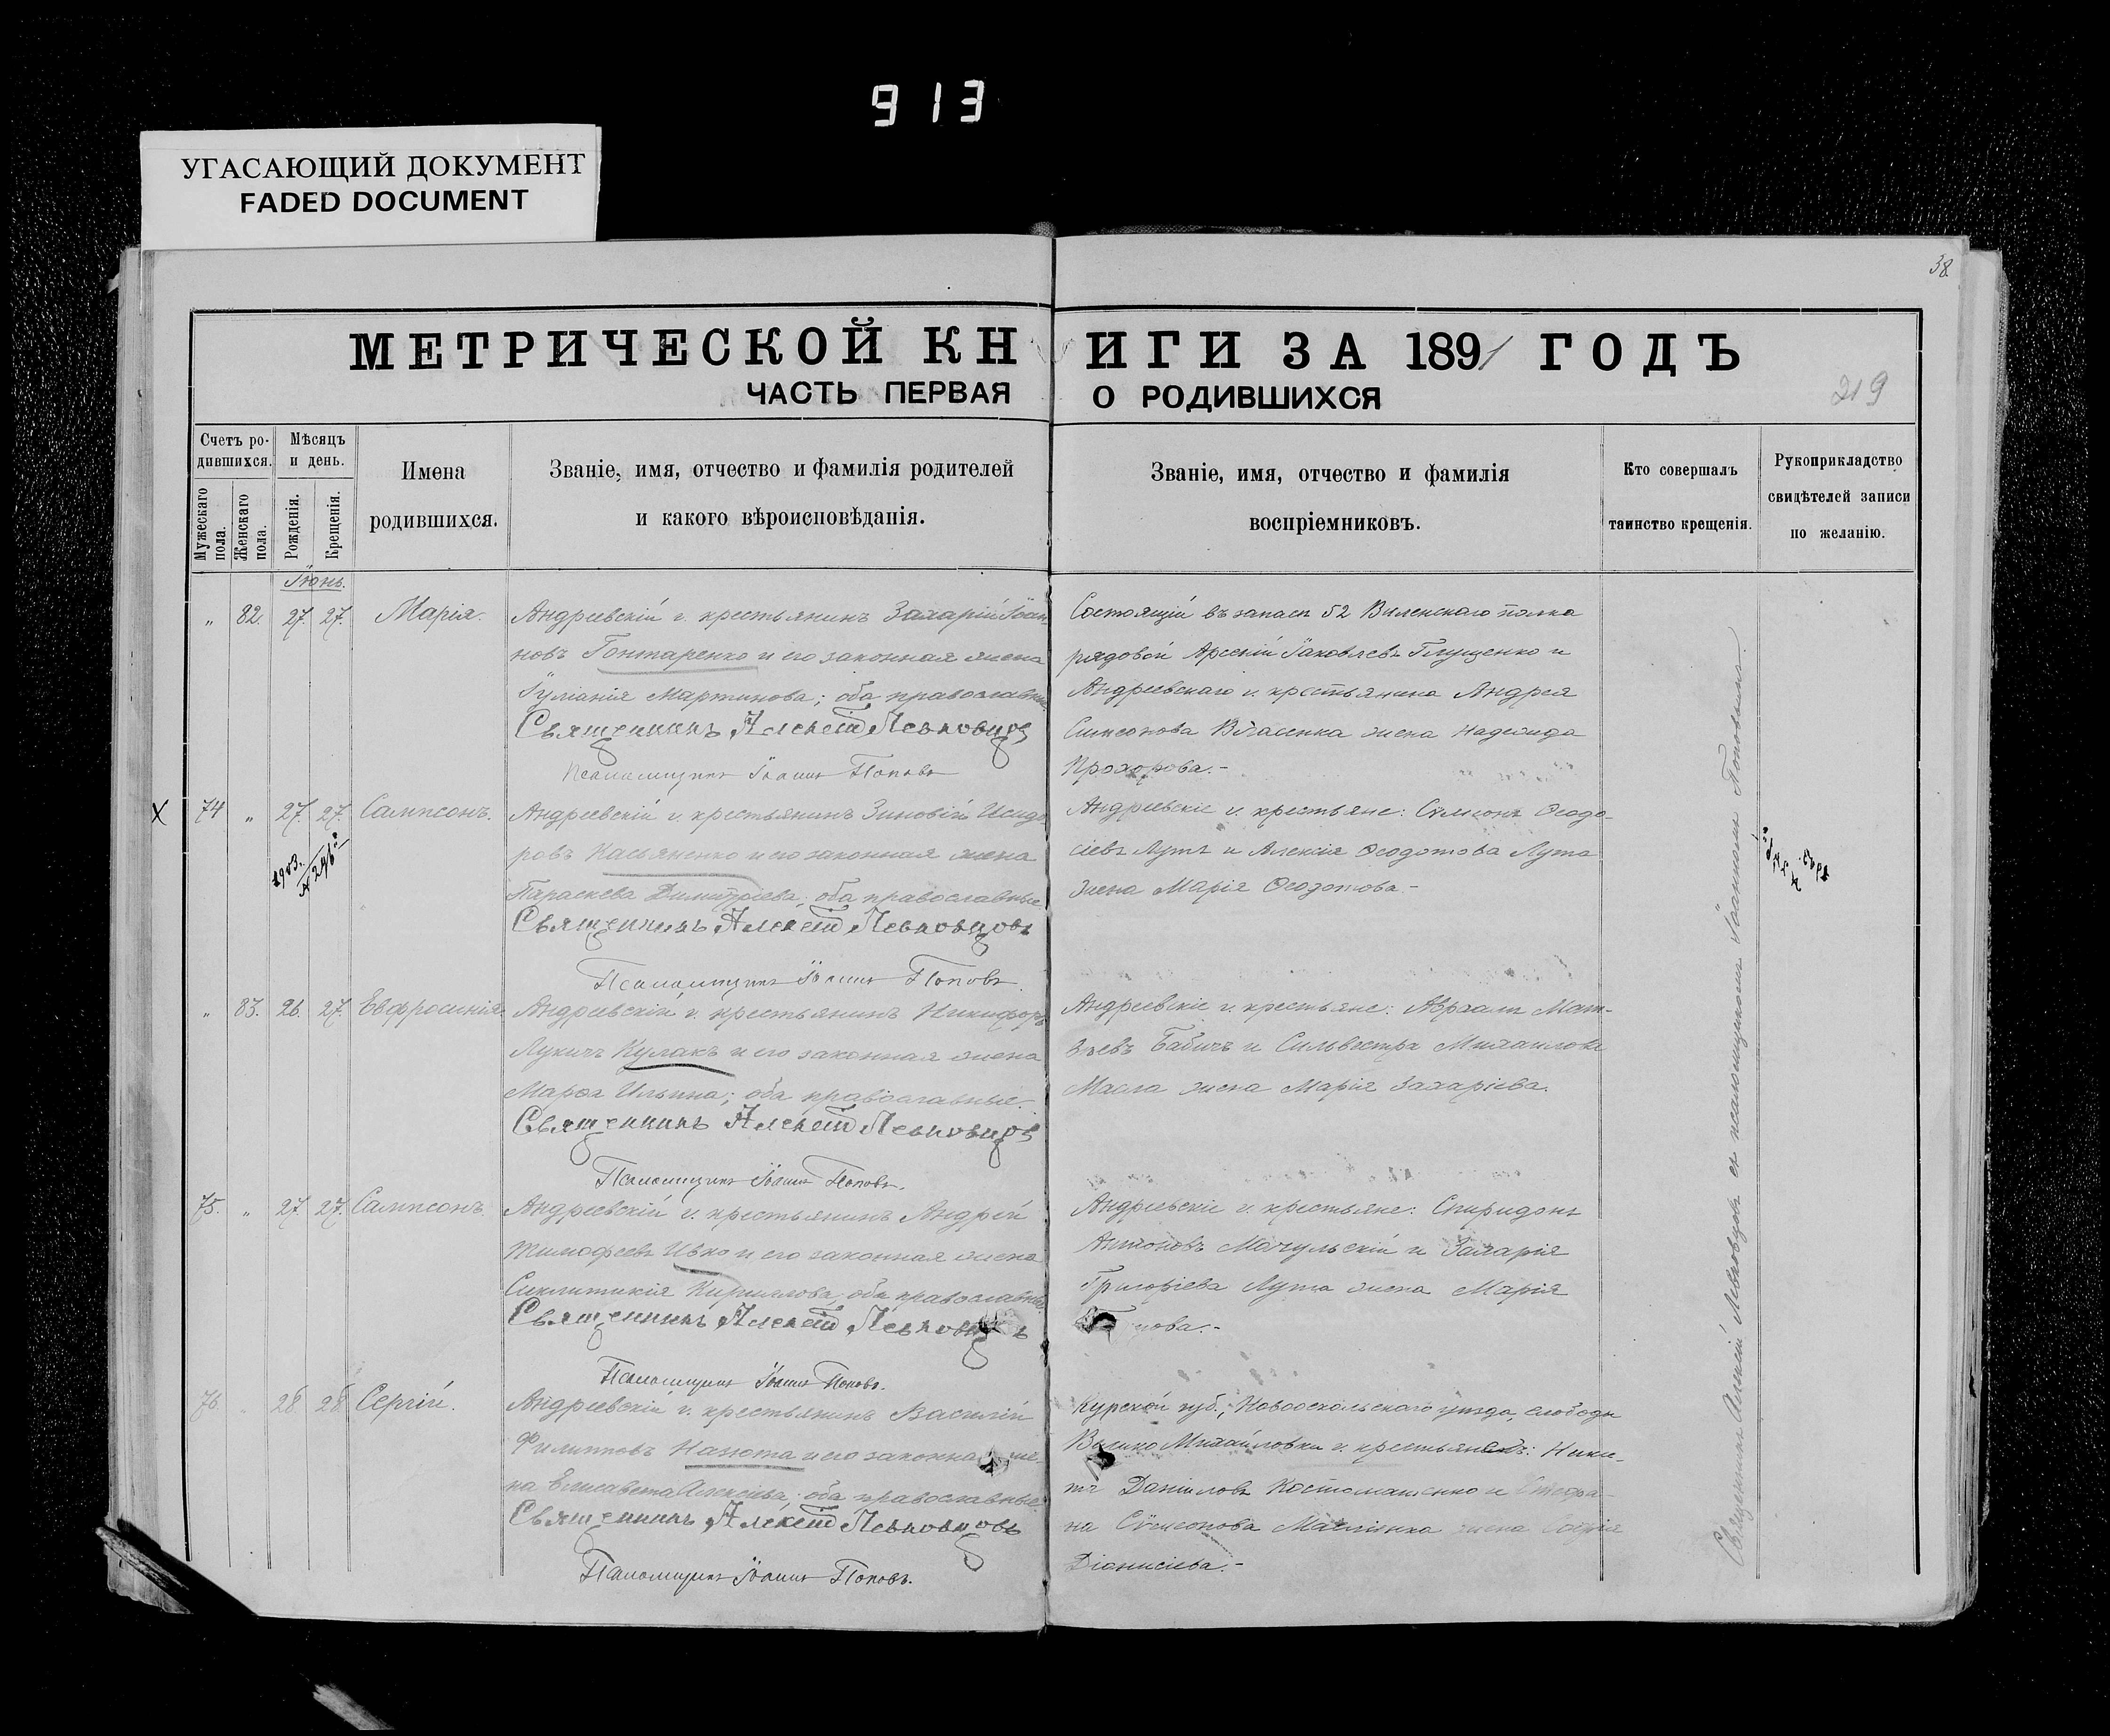 913
УГАСАЮЩИЙ ДОКУМЕНТ
FADED DOCUMENT
38
МЕТРИЧЕСКОЙ КНИГИ ЗА 1891 ГОДЪ
ЧАСТЬ ПЕРВАЯ О РОДИВШИХСЯ
219
Счетъ ро-
дившихся.
Мужескаго пола.
Женскаго пола.
Мѣсяцъ
и день.
Рожденія.
Крещенія.
Имена
родившихся.
Званіе, имя, отчество и фамилія родителей
и какого вѣроисповѣданія.
Званіе, имя, отчество и фамилія
воспріемниковъ.
Кто совершалъ
таинство крещенія.
Рукоприкладство
свидѣтелей записи
по желанію.
Іюнь.
" 82. 27. 27. Марія.
Андреевскій с. крестьянинъ Захарій Іоан-
новъ Гонтаренко и его законная жена
Іуліанія Мартинова; оба православные
Священникъ Алексій Левковцовъ
Псаломщикъ Іоаннъ Поповъ
Состоящій въ запасѣ 52 Виленскаго полка
рядовой Арсеній Іаковлевъ Глущенко и
Андреевскаго с. крестьянина Андрея
Симеонова Власенка жена Надежда
Прохорова.-
X 74 " 27. 27. Сампсонъ.
1903.
№ 296
Андреевскій с. крестьянинъ Зиновій Исидо-
ровъ Касьяненко и его законная жена
Параскева Димитріева; оба православные
Священникъ Алексій Левковцовъ
Псаломщикъ Іоаннъ Поповъ.
Андреевскіе с. крестьяне: Сѵмеонъ Ѳеодо-
сіевъ Лута и Алексія Ѳеодотова Лута
жена Марія Ѳеодотова.-
" 83. 26. 27. Евфросинія.
Андреевскій с. крестьянинъ Никифоръ
Лукичъ Кулакъ и его законная жена
Марѳа Ильина; оба православные.
Священникъ Алексій Левковцовъ
Псаломщикъ Іоаннъ Поповъ.
Андреевскіе с. крестьяне: Авраамъ Мат-
вѣевъ Бабичъ и Сильвестра Михаилова
Масла жена Марія Захаріева.
75. " 27. 27. Сампсонъ.
Андреевскій с. крестьянинъ Андрей
Тимофеевъ Ивко и его законная жена
Синклитикія Кириллова; оба православные
Священникъ Алексій Левковцовъ
Псаломщикъ Іоаннъ Поповъ.
Андреевскіе с. крестьяне: Спиридонъ
Антоновъ Мачульскій и Захарія
Григоріева Лута жена Марія
нова.-
76. " 28 28 Сергій.
Андреевскій с. крестьянинъ Василій
Филипповъ Назюта и его законная же-
на Елисавета Алексіева; оба православные
Священникъ Алексій Левковцовъ
Псаломщикъ Іоаннъ Поповъ.
Курской губ., Новооскольскаго уѣзда, слободы
Велико Михайловки с. крестьянинъ: Ники-
та Даніиловъ Костоматенко и Стефа-
на Сѵмеонова Маслинка жена Софія
Діонисіева.-
Священникъ Алексій Левковцовъ съ псаломщикомъ Іоанномъ Поповымъ.